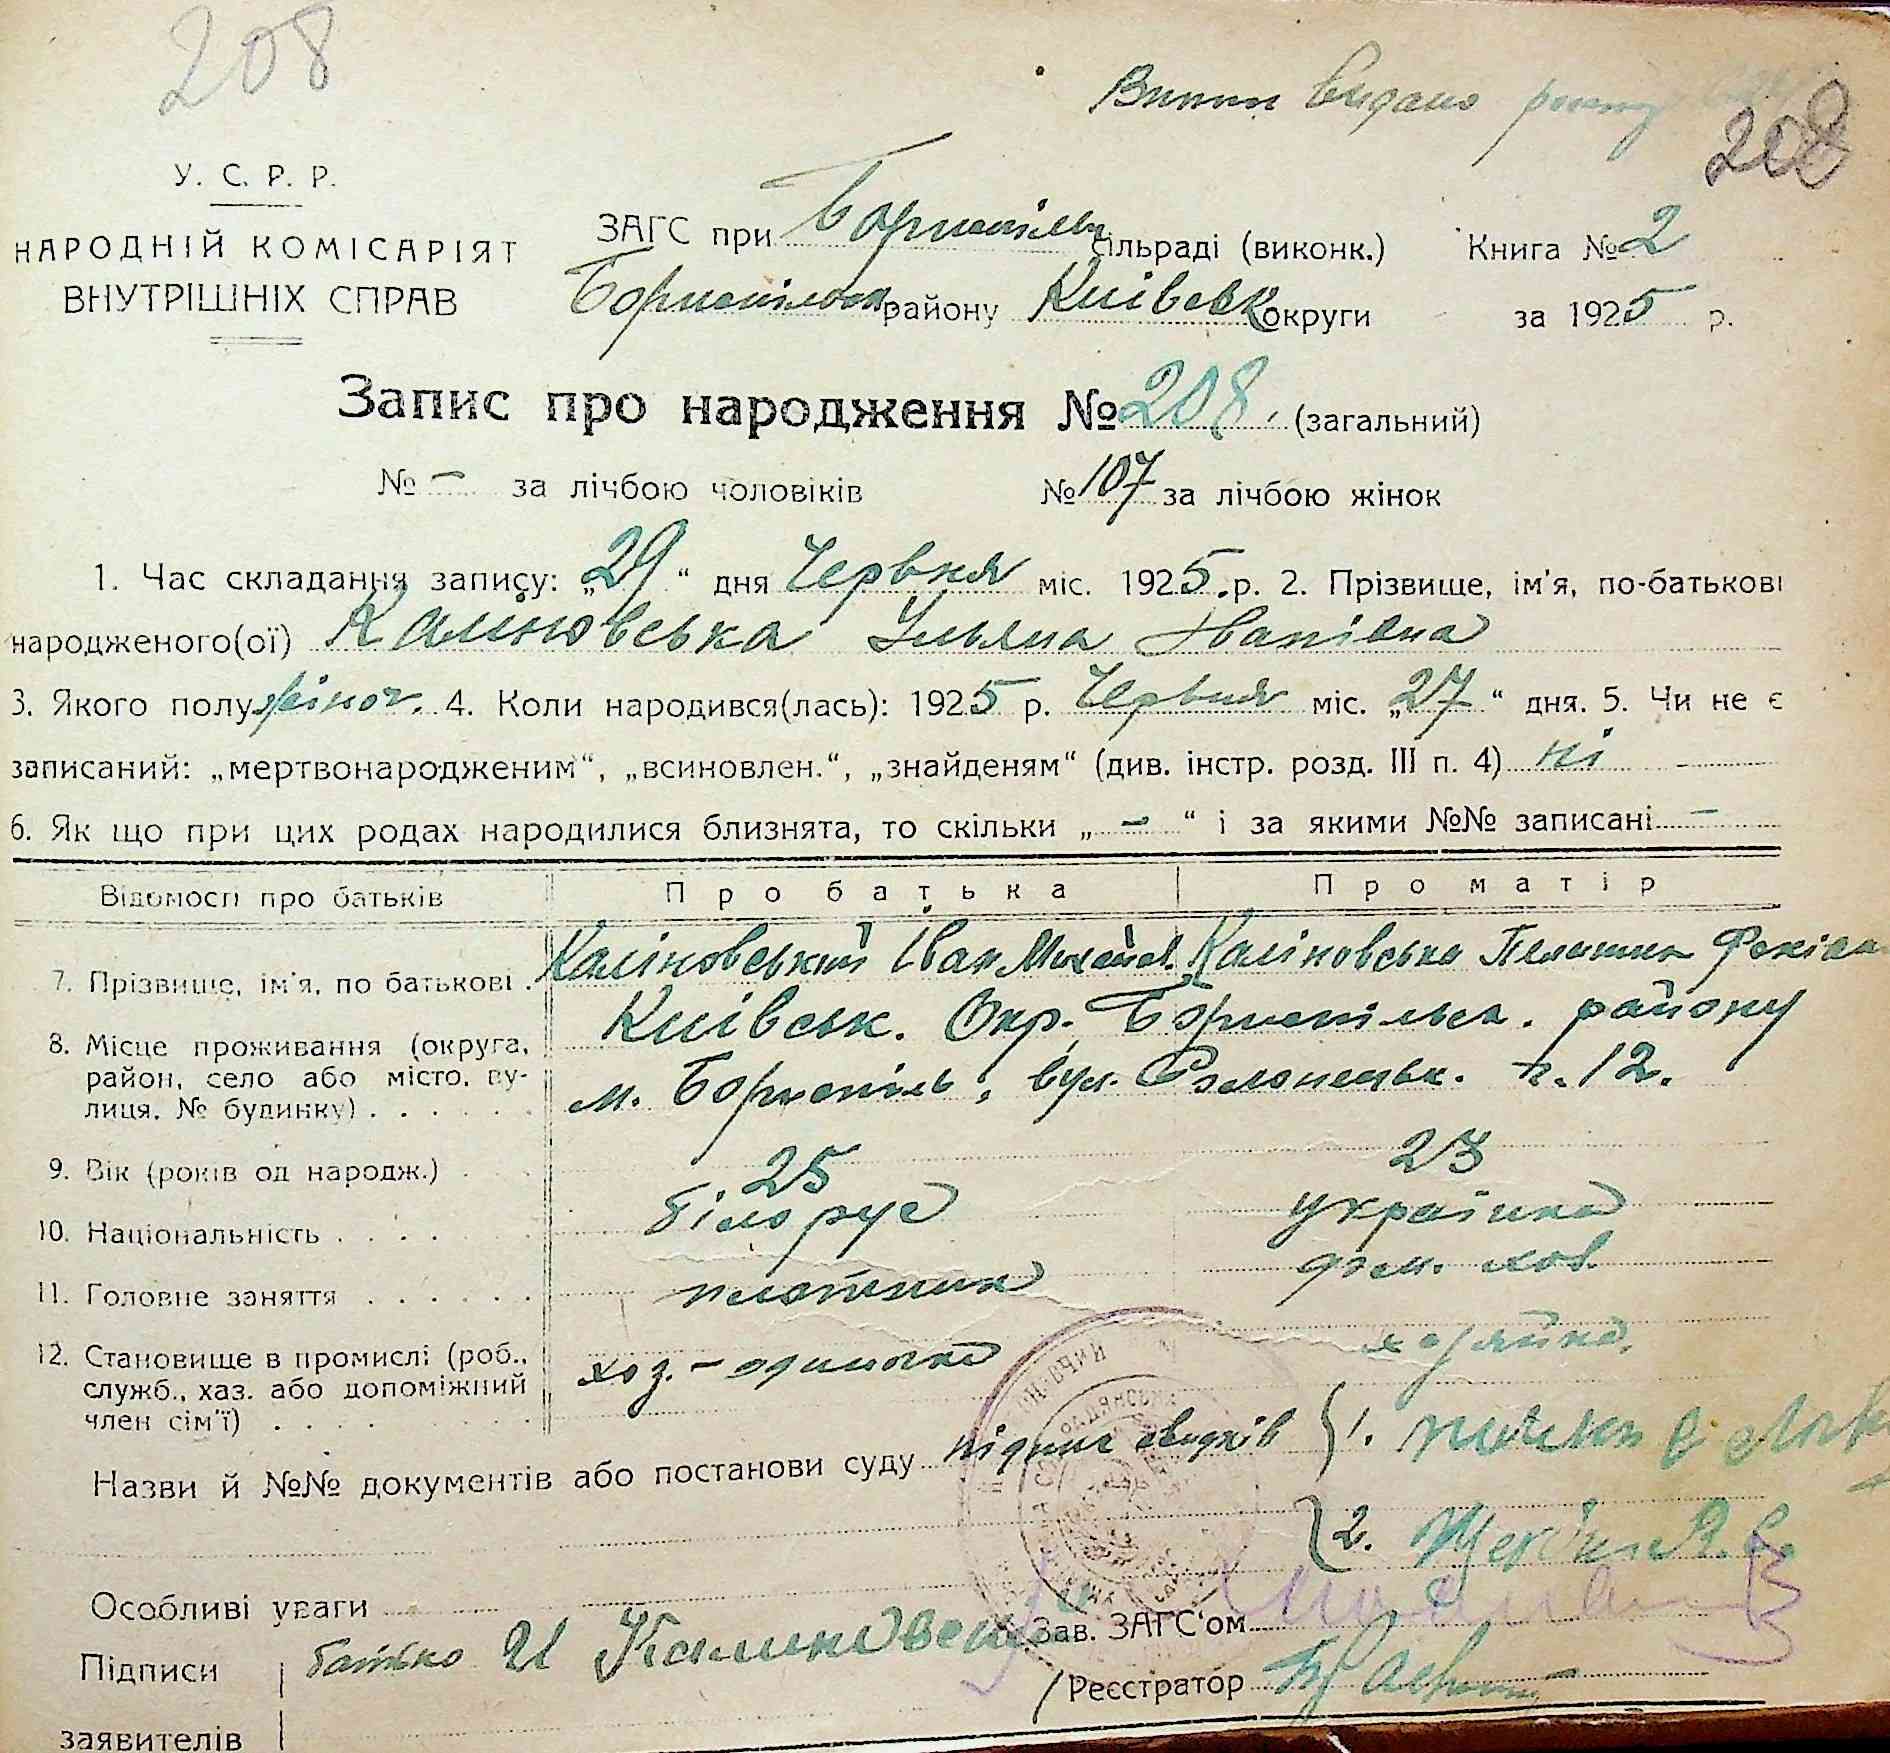 208
Випис видано
208
У. С. Р. Р.
НАРОДНІЙ КОМІСАРІЯТ
ВНУТРІШНІХ СПРАВ
ЗАГС при Бориспільск сільраді (виконк.) Книга № 2
Бориспільськ району Київськ округи за 1925 р.
Запис про народження № 208. (загальний)
№ – за лічбою чоловіків № 107 за лічбою жінок
1. Час складання запису: „29“ дня Червня міс. 1925.р. 2. Прізвище, ім'я, по-батькові
народженого(ої) Каліновська Ульяна Іванівна
3. Якого полу жіноч. 4. Коли народився(лась): 1925 р. Червня міс. „27“ дня. 5. Чи не є
записаний: „мертвонародженим“, „всиновлен.“, „знайденям“ (див. інстр. розд. III п. 4) ні
6. Як що при цих родах народилися близнята, то скільки „–“ і за якими №№ записані –
Відомості про батьків Про батька Про матір
7. Прізвище, ім'я, по батькові . Каліновський Іван Михайл. Каліновська Пелагия
8. Місце проживання (округа, район, село або місто, ву-лиця, № будинку) . . . . . . Київськ. Окр. Бориспільск. району
м. Бориспіль, вул. н. 12.
9. Вік (років од народж.) 25 23
10. Національність . . . . білорус українка
11. Головне заняття . . . . . . плотник дом. хоз.
12. Становище в промислі (роб., служб., хаз. або допоміжний член сім'ї) . . . . хоз.-одиночка хозяйка.
Назви й №№ документів або постанови суду підпис свидків 1.
2.
Особливі уваги
Зав. ЗАГС'ом
Підписи батько И Калиновский
Реєстратор
заявителів